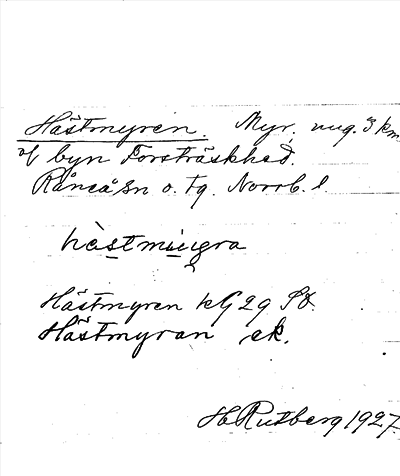 Hästmyren. Myr, ung. 3 km
of byn Forsträskhed.
Råneå sn o. tg. Norrb. l.
hästmýra
Hästmyren kG 29 Sö.
Hästmyran ek.
H. Rutberg 1927.